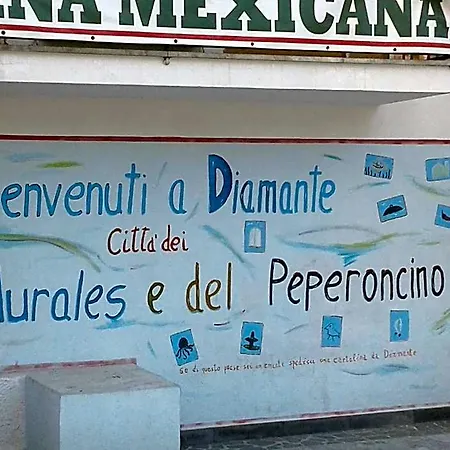 NA MEXICANA
envenuti a Diamante
Città dei
urales e del Peperoncino
se di questo paese sei innamorato spedisci una cartolina da Diamante